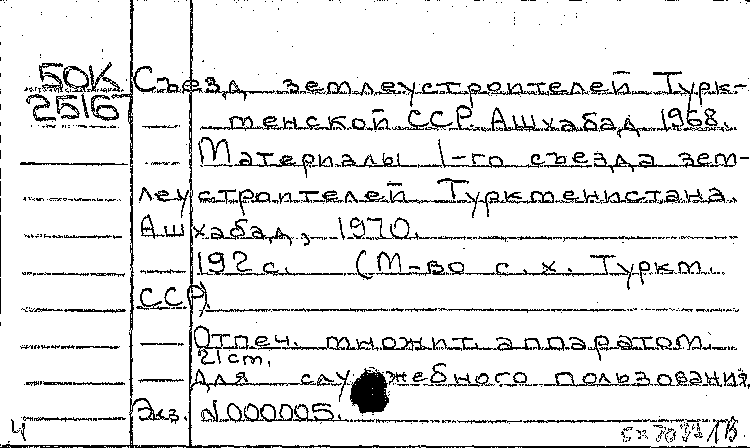 50К Съезд землеустроителей Турк-
25167 менской ССР. Ашхабад 1968.
Материалы 1-го съезда зем-
леустроителей Туркменистана.
Ашхабад, 1970.
192 с. (М-во с. х. Туркм.
ССР).
Отпеч. множит. аппаратом.
21 cm.
Для служебного пользования.
Экз. №000005.
4